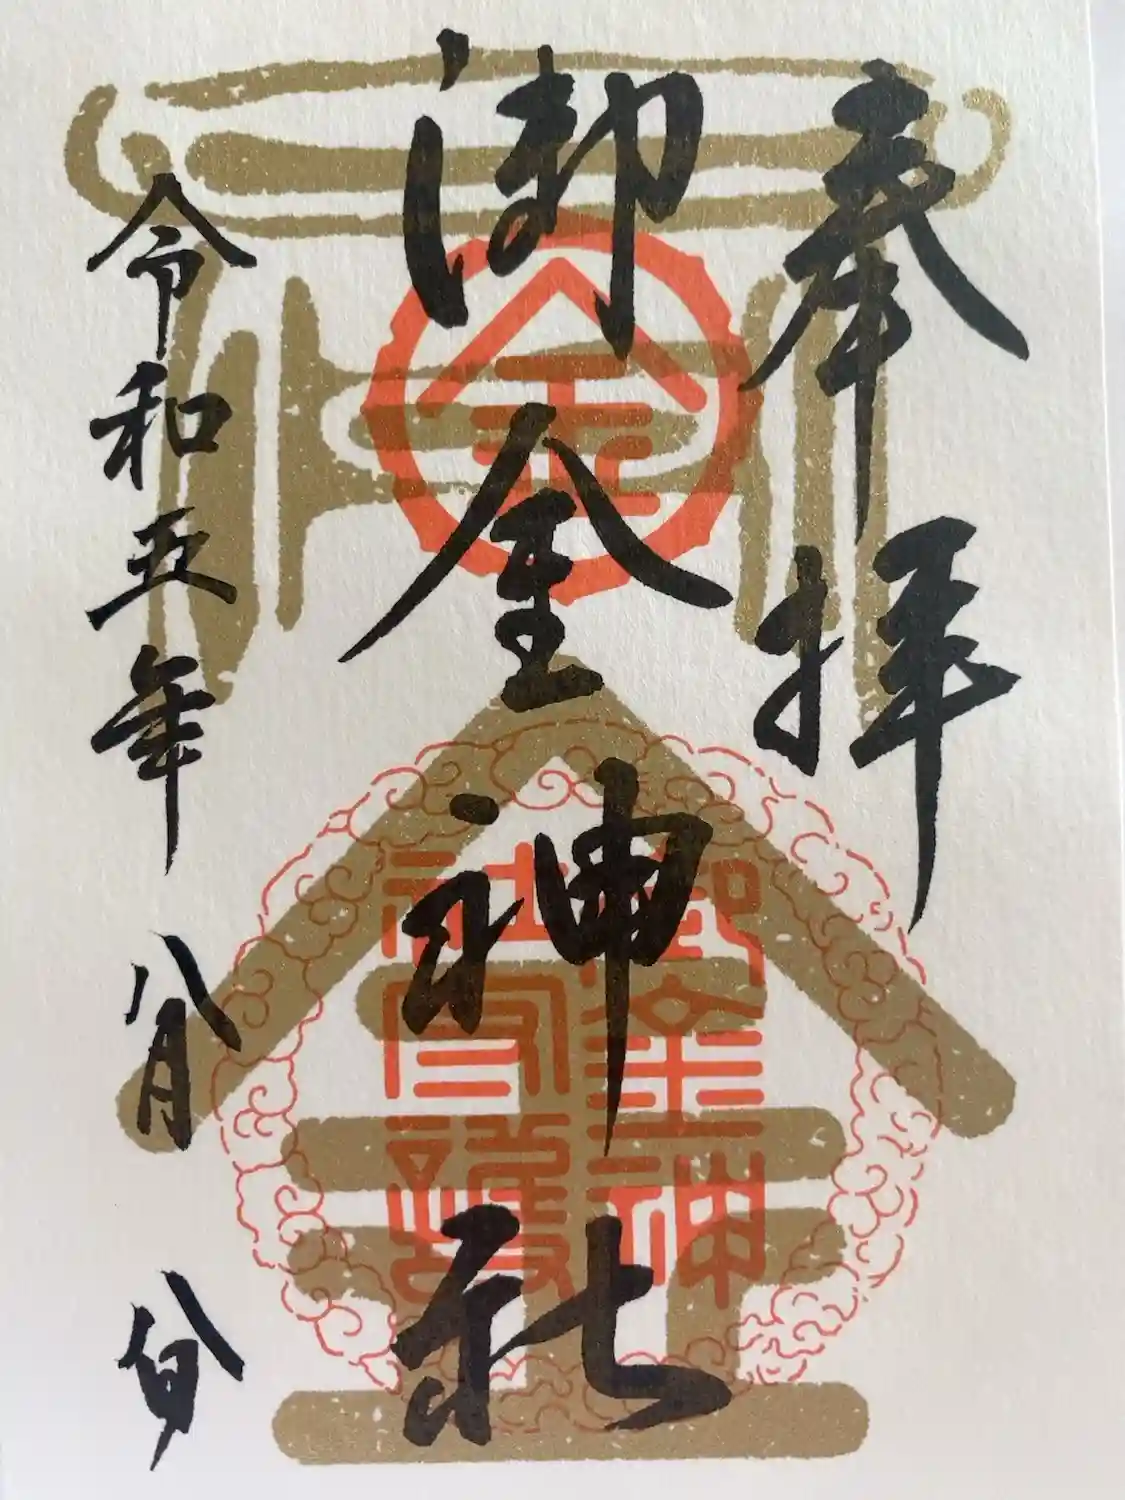 奉拝
御金神社
令和五年八月八日
金
金
御金神
社